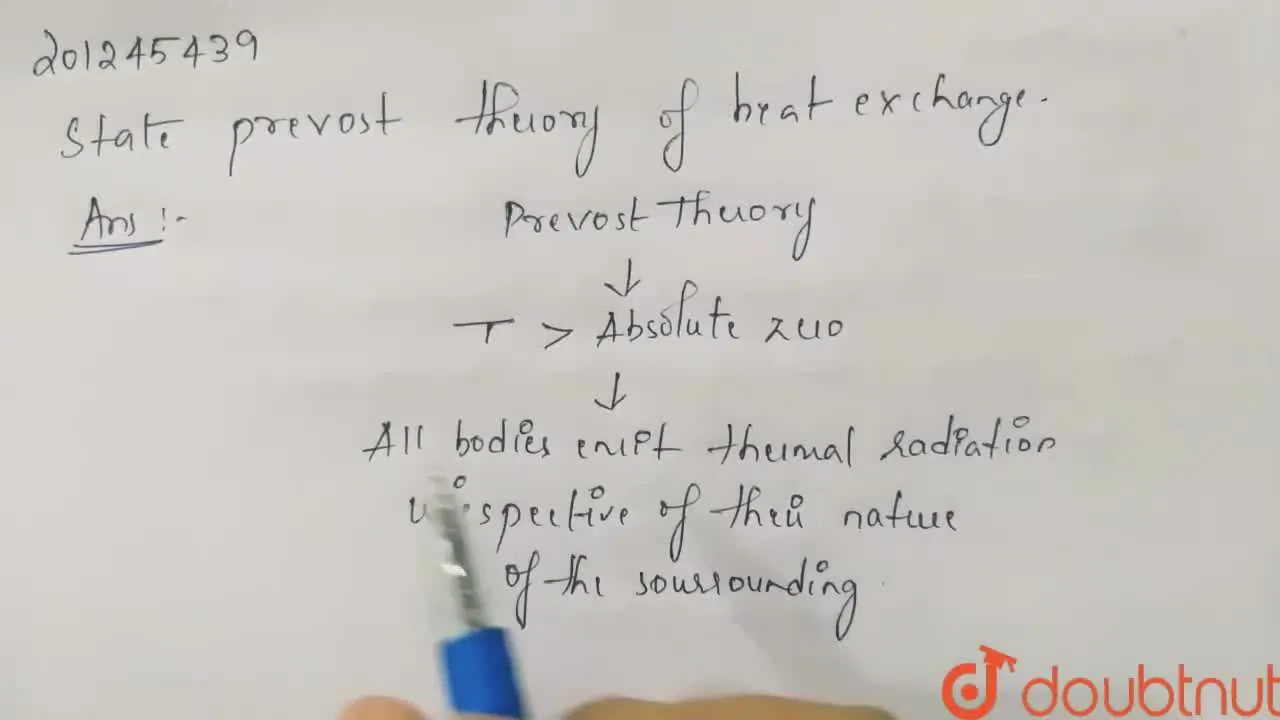 201245439
State prevost theory of heat exchange.
Ans :-
Prevost Theory
↓
T > Absolute zero
↓
All bodies emit thermal radiation
of their nature
of the sourrounding.
doubtnut